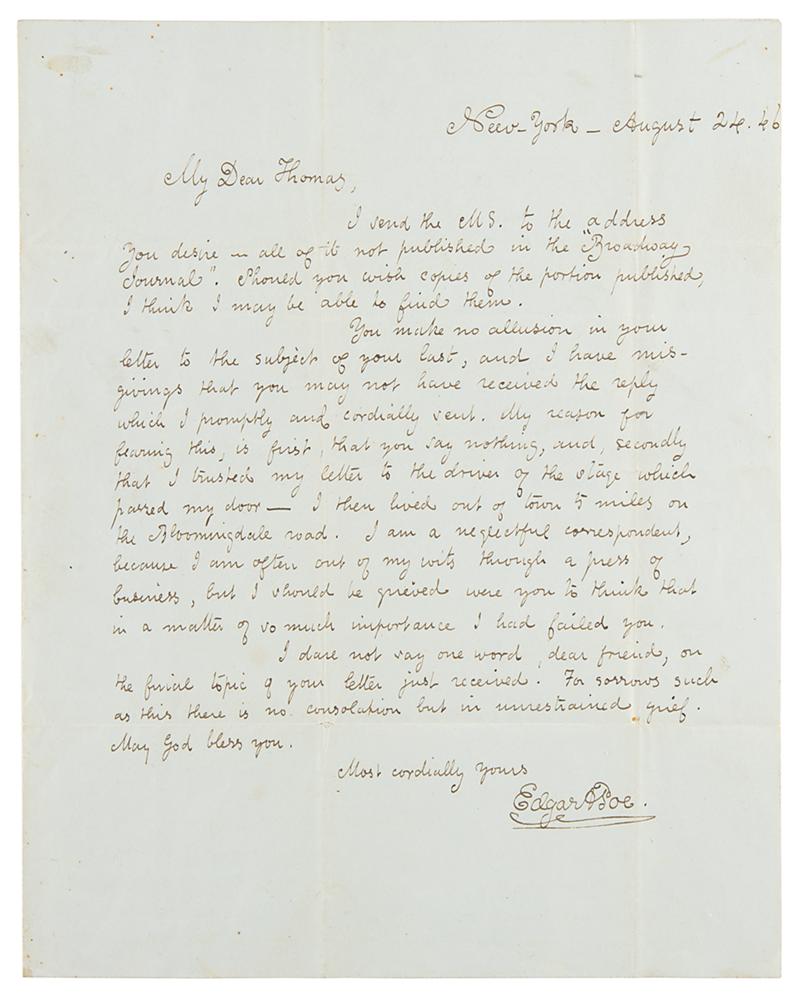 New-York - August 24. 46
My Dear Thomas,
I send the MS. to the address
you desire — all of it not published in the "Broadway
Journal". Should you wish copies of the portion published,
I think I may be able to find them.
You make no allusion in your
letter to the subject of your last, and I have mis-
givings that you may not have received the reply
which I promptly and cordially sent. My reason for
fearing this, is first, that you say nothing, and, secondly
that I trusted my letter to the driver of the stage which
passed my door — I then lived out of town 5 miles on
the Bloomingdale road. I am a neglectful correspondent,
because I am often out of my wits through a press of
business, but I should be grieved were you to think that
in a matter of so much importance I had failed you.
I dare not say one word, dear friend, on
the finial topic of your letter just received. For sorrows such
as this there is no consolation but in unrestrained grief.
May God bless you.
Most cordially yours
Edgar A Poe.